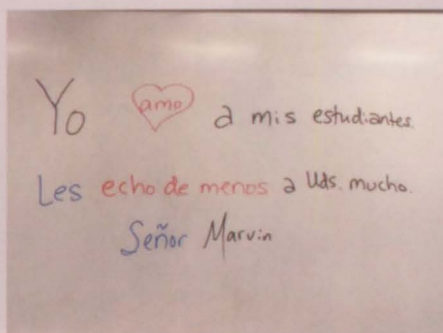 Yo amo a mis estudiantes.
Les echo de menos a Uds. mucho.
Señor Marvin